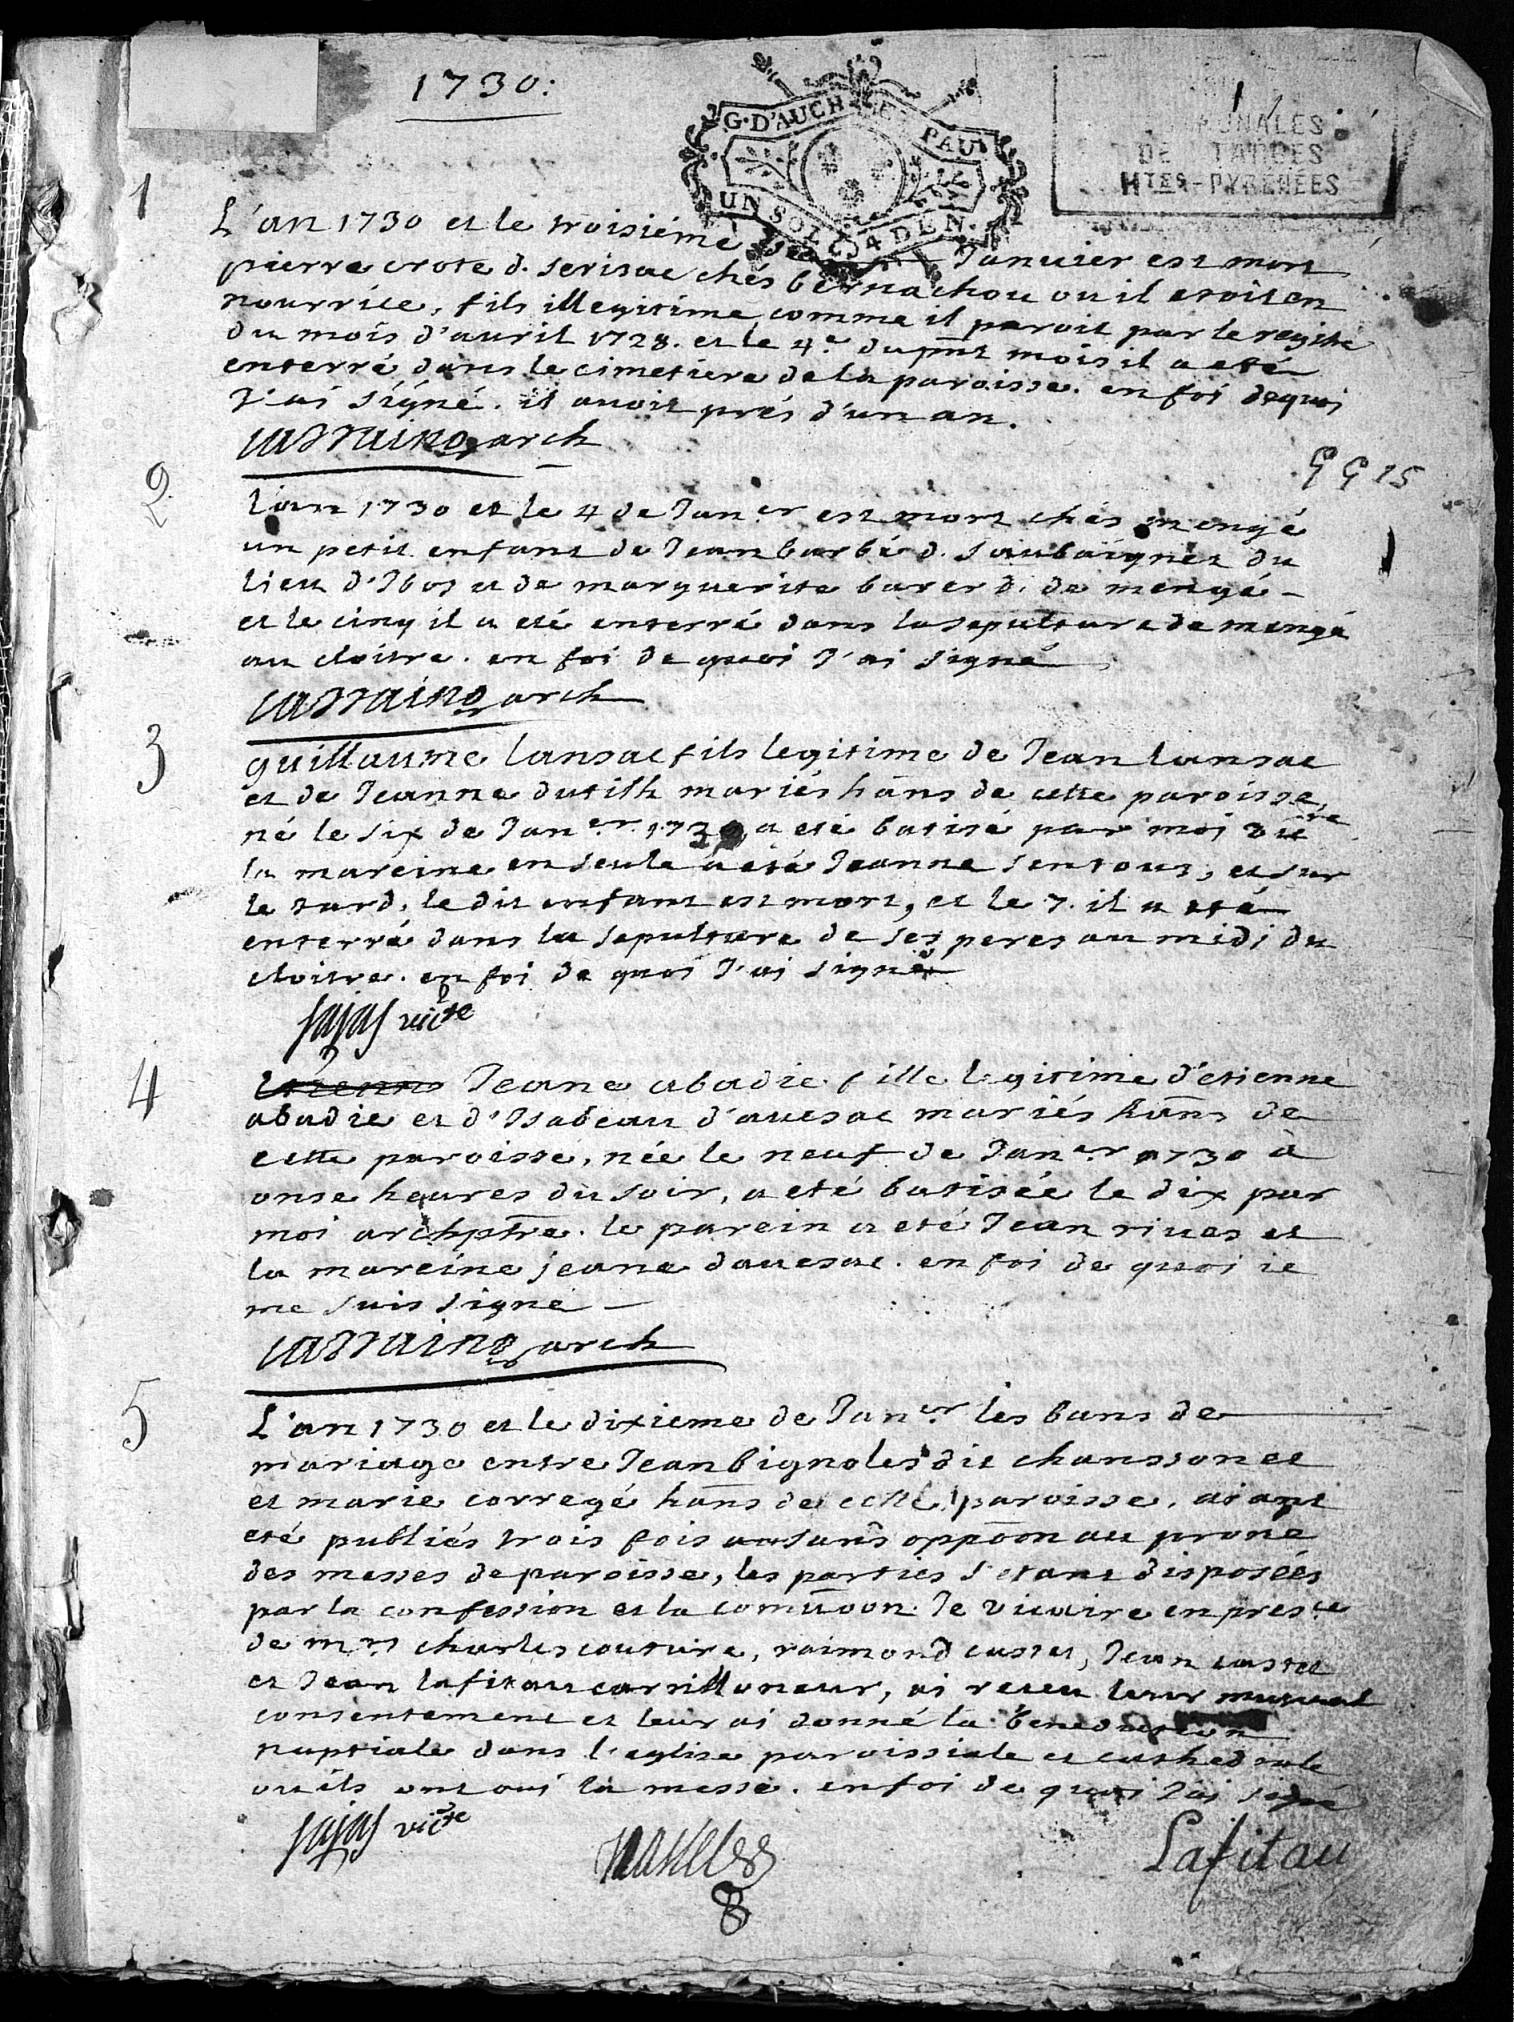 1730:
G. D'AUCH ET PAU
UN SOL 4 DEN.
COMMUNALES
DE TARBES
HTES-PYRÉNÉES
1
L'an 1730 et le troisiéme de Januier est mort
pierre crote d. serisac chés bernachou ou il etoit en
nourrice, fils illegitime comme il paroit par le registre
du mois d'auril 1728. et le 4e. du pnt mois il a eté
enterré dans le cimetiere de la paroisse. en foi dequoi
J'ai signé. il auoit prés d'un an.
arch
GG 15
2
L'an 1730 et le 4 de Janer est mort chés mengé
un petit enfant de Jean barbé d. saubaignet du
lieu d'Ibos et de marguerite barer d. de mengé -
et le cinq il a eté enterré dans la sepulture de mengé
au cloitre. en foi de quoi J'ai signé
arch
3
guillaume lansac fils legitime de Jean lansac
et de Jeanne dutilh mariés hans de cette paroisse,
né le six de Janer. 1730 a eté batisé par moi vicre
la mareine en seule a eté Jeanne sentous, et sur
le tard, le dit enfant est mort, et le 7. il a eté
enterré dans la sepulture de ses peres au midi du
cloitre. en foi de quoi J'ai signé
sajas vicre
4
Jeane abadie fille legitime d'etienne
abadie et d'Isabeau d'auesac mariés hans de
cette paroisse, née le neuf de Janer 1730 à
onse heures du soir, a eté batisée le dix par
moi archptre. le parein a eté Jean riues et
la mareine jeane dauesac. en foi de quoi ie
me suis signé
arch
5
L'an 1730 et le dixieme de Janer les bans de
mariage entre Jean bignoles dit chanssonet
et marie corregé hans de cette paroisse, aiant
eté publiés trois fois sans oppoon au prone
des messes de paroisse, les parties s'etant disposées
par la confession et la comuoon. Je vicaire en presce
de mrs charles couture, raimond castet, Jean castet
et Jean lafitau carrilloneur, ai receu leur mutuel
consentement et leur ai donné la benediction
nuptiale dans l'eglise paroissiale et cathedrale
ou ils ont oui la messe. en foi de quoi J'ai signé
sajas vicre
Lafitau
8